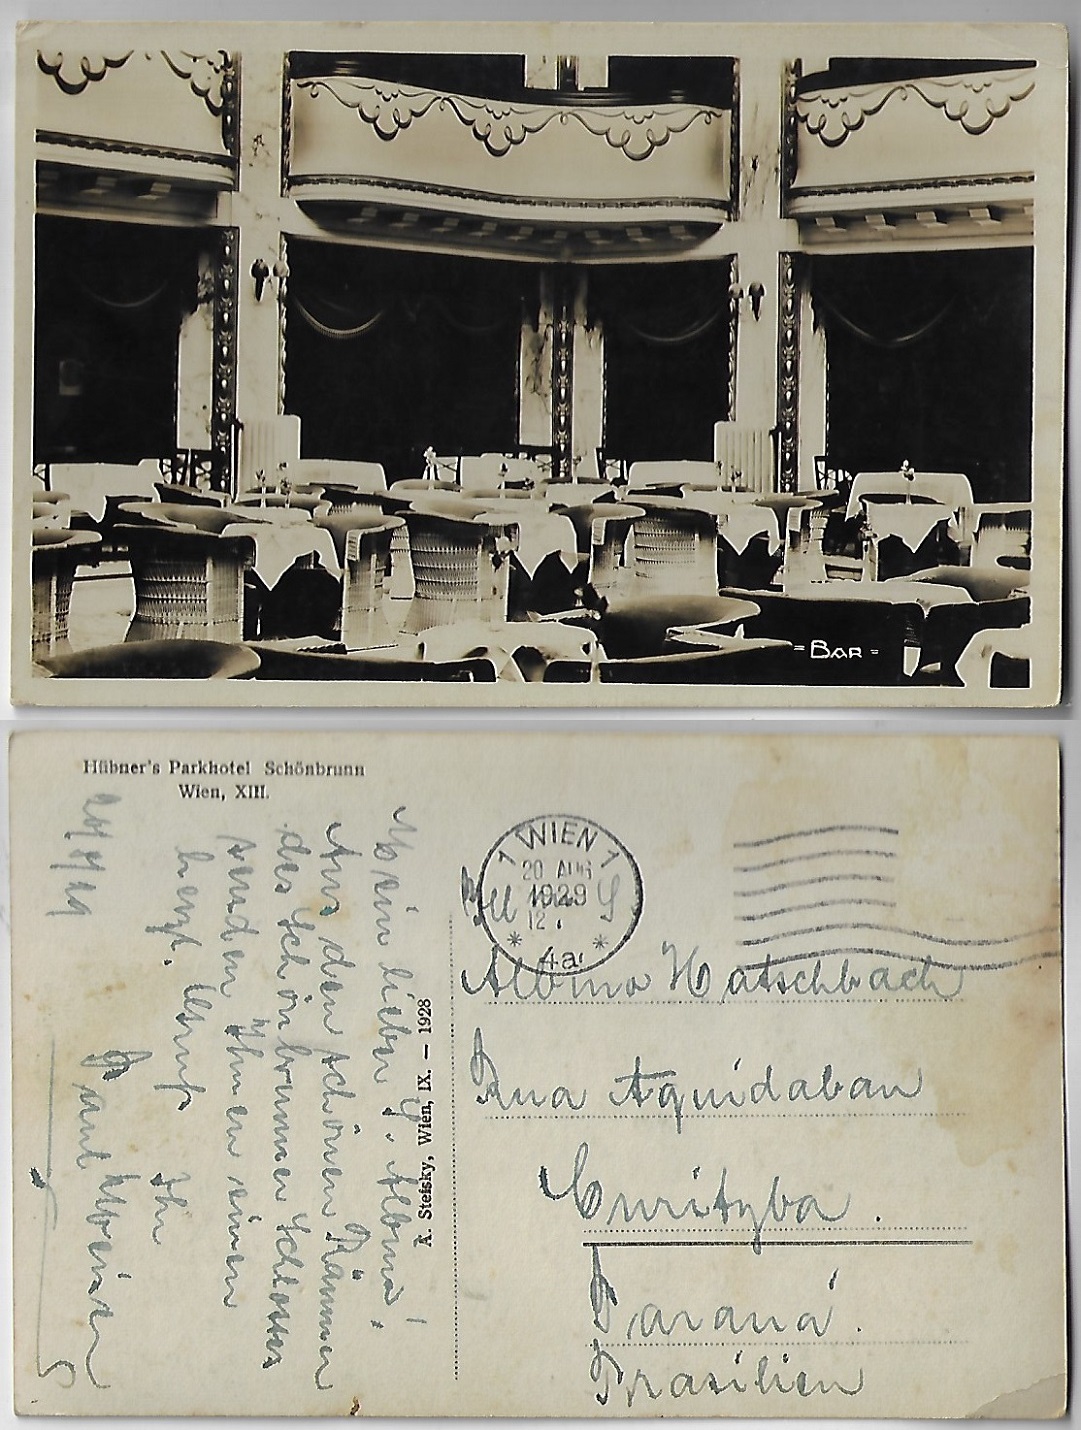 = BAR =
Hübner's Parkhotel Schönbrunn
Wien, XIII.
Mein lieber H. Albino!
Aus den schönen Räumen
des Schönbrunner Schlosses
senden Ihnen einen
herzl.
Ihr
Paul
A. Stefsky, Wien, IX. — 1928
1 WIEN 1
20 AUG
1929
12
* 4a *
Albino Hatschbach
Rua Aquidaban
Curityba.
Paraná.
Brasilien